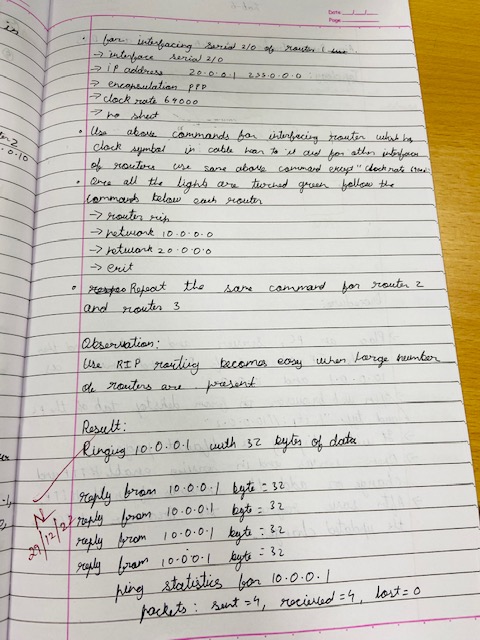 Date __/__/__
Page
• for interfacing serial 2/0 of router 1 use
→ interface serial 2/0
→ IP address 20.0.0.1 255.0.0.0
→ encapsulation PPP
→ clock rate 64000
→ no shut
• Use above commands for interfacing router which has
clock symbol in cable near to it and for other interfaces
of routers use same above command except "clock rate
• Once all the lights are turned green follow the
commands below each router
→ router rip
→ network 10.0.0.0
→ network 20.0.0.0
→ exit
• Repeat the same command for router 2
and router 3
Observation:
Use RIP routing becomes easy when large number
of routers are present
Result:
Pinging 10.0.0.1 with 32 bytes of data
reply from 10.0.0.1 byte = 32
reply from 10.0.0.1 byte = 32
reply from 10.0.0.1 byte = 32
reply from 10.0.0.1 byte = 32
ping statistics for 10.0.0.1
packets: sent = 4, recieved = 4, lost = 0
29/12/22